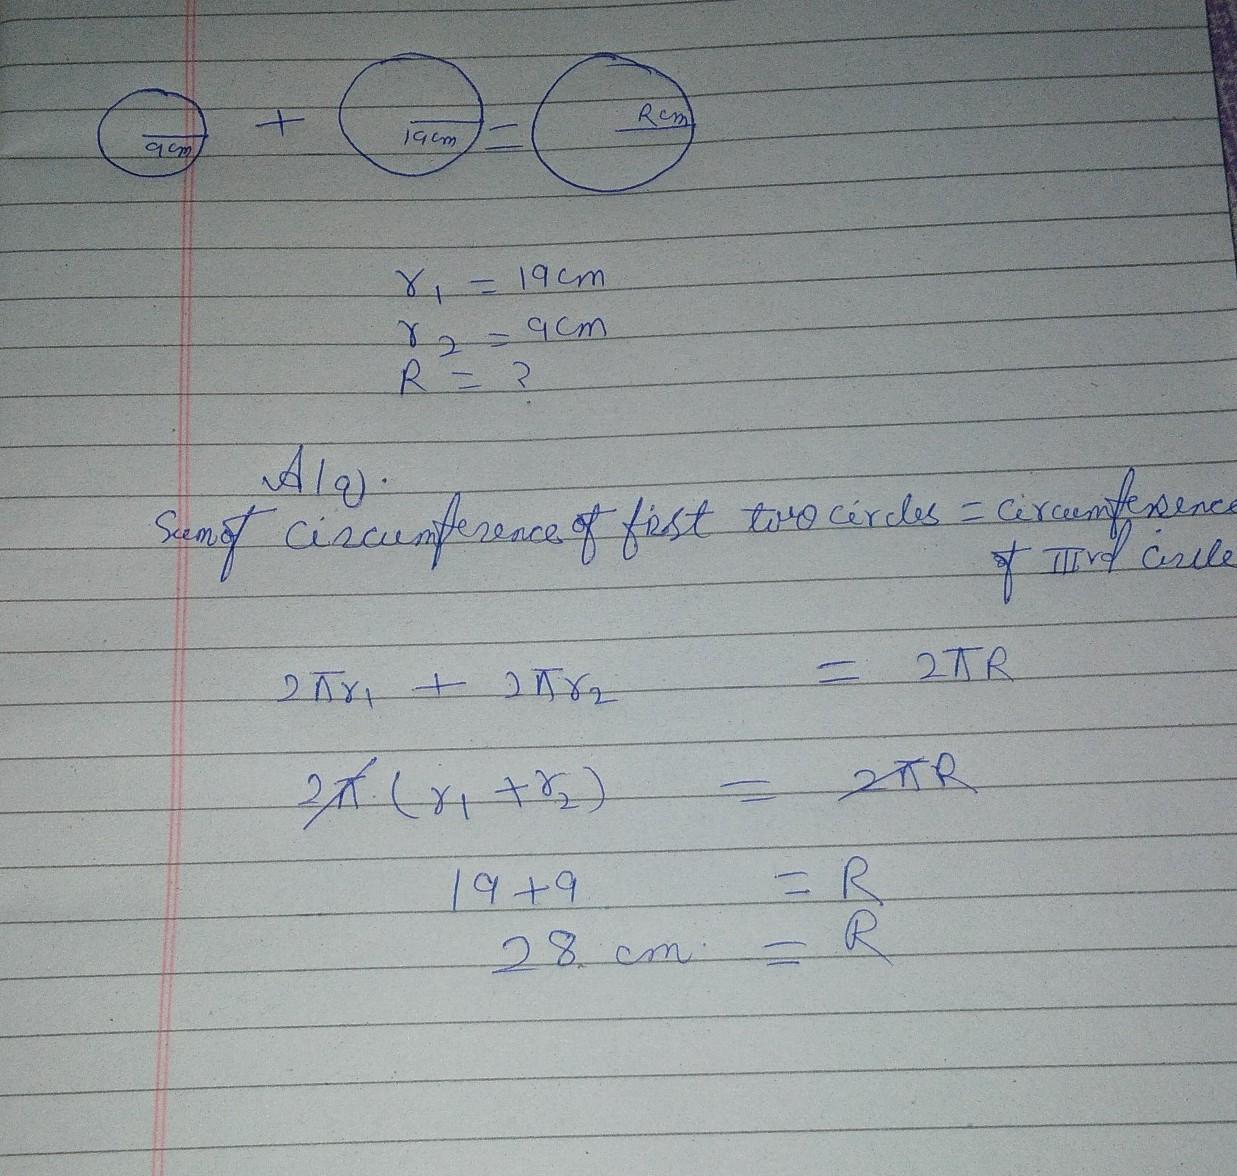 9cm + 19cm = Rcm
r₁ = 19cm
r₂ = 9cm
R = ?
A/q.
Sum of circumference of first two circles = circumference
of IIIrd circle
2πr₁ + 2πr₂ = 2πR
2π (r₁ + r₂) = 2πR
19+9 = R
28 cm = R